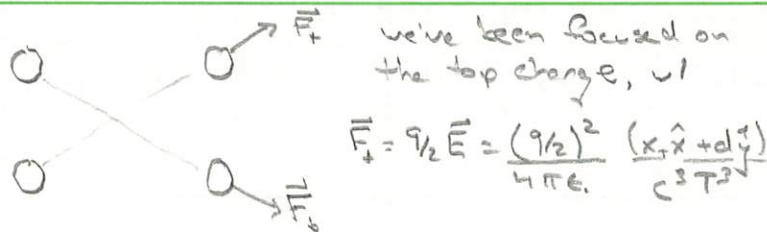 F⃗₊
we've been focused on
the top charge, w/
F⃗₊ = q/2 E⃗ = (q/2)² / 4πε₀ (x₊x̂ + dŷ) / c³T³
F⃗_b